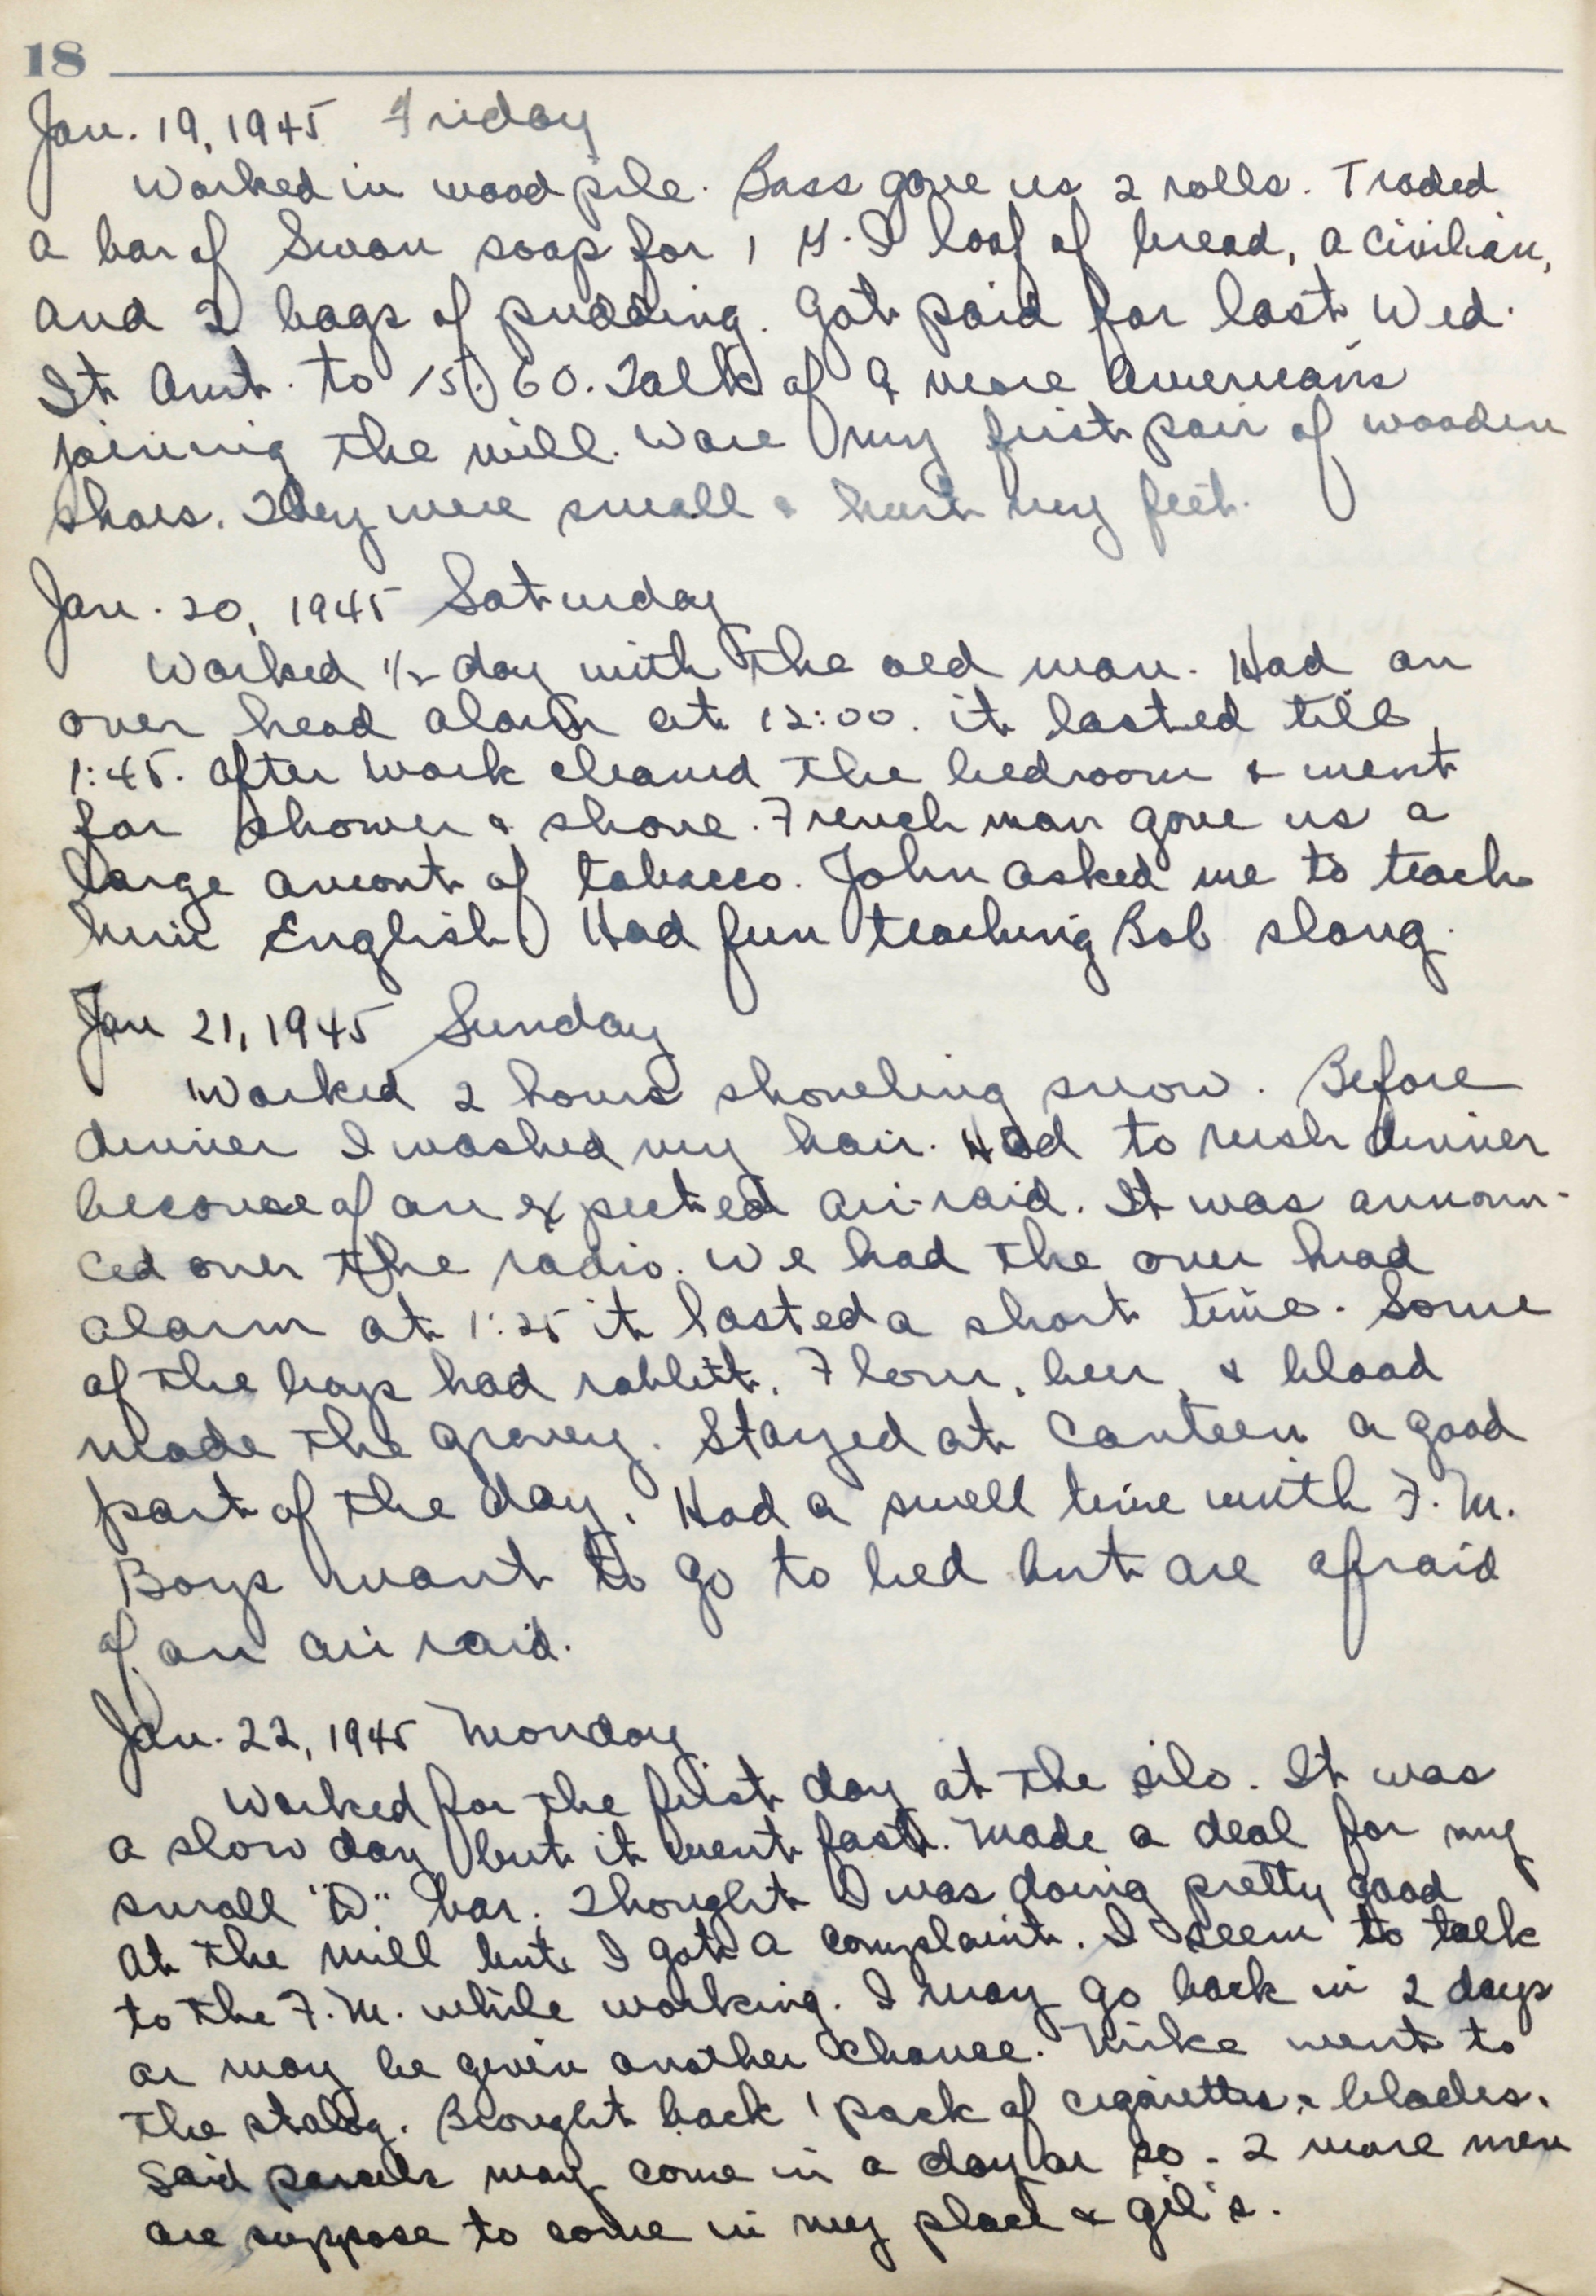 18
Jan. 19, 1945 Friday
Worked in wood pile. Boss gave us 2 rolls. Traded
a bar of Swan soap for 1 G.I loaf of bread, a civilian,
and 2 bags of pudding. Got paid for last Wed.
It amt. to 15.60. Talk of 9 more Americans
joining the mill. Wore my first pair of wooden
shoes. They were small & hurt my feet.
Jan. 20, 1945 Saturday
Worked 1/2 day with the old man. Had an
over head alarm at 12:00. it lasted till
1:45. After work cleaned the bedroom & went
for shower & shave. French man gave us a
large amont of tobacco. John asked me to teach
him English. Had fun teaching Bob slang.
Jan 21, 1945 Sunday
Worked 2 hours shoveling snow. Before
dinner I washed my hair. Had to rush dinner
because of an expected air-raid. It was announ-
ced over the radio. We had the over head
alarm at 1:25 it lasted a short time. Some
of the boys had rabbitt. Flour, beer, & blood
made the gravey. Stayed at Canteen a good
part of the day. Had a swell time with F.M.
Boys want to go to bed but are afraid
of an air raid.
Jan. 22, 1945 Monday
Worked for the first day at the silo. It was
a slow day but it went fast. Made a deal for my
small "D" bar. Thought I was doing pretty good
at the mill but I got a complaint. I seem to talk
to the F.M. while working. I may go back in 2 days
or may be given another chance. Mike went to
the stalag. Brought back 1 pack of cigarettes & blades.
Said parcels may come in a day or so. 2 more men
are suppose to come in my place & Gil's.